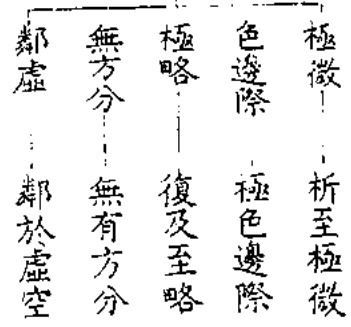 極微 析至極微
色邊際 極色邊際
極略 復及至略
無方分 無有方分
鄰虛 鄰於虛空